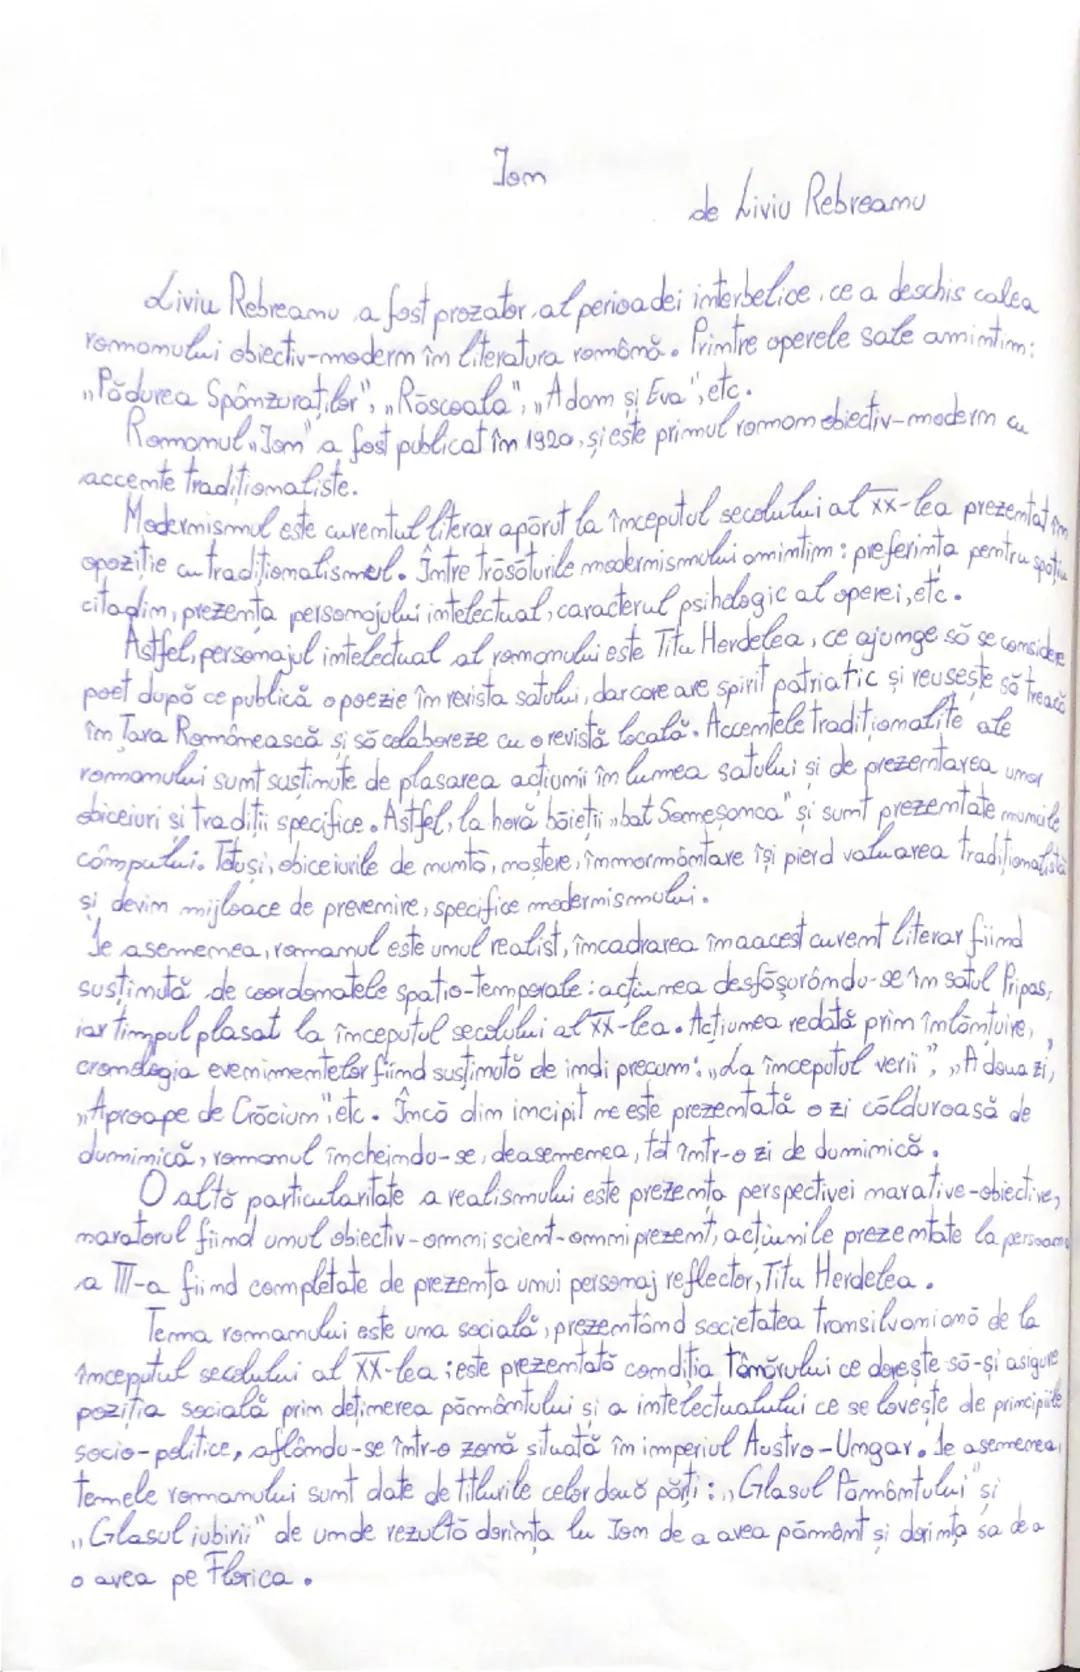 Ion
de Liviu Rebreanu
Liviu Rebreanu a fost prozator al perioadei interbelice, ce a deschis calea
romanului obiectiv-modern în literatura română. Printre operele sale amintim:
„Pădurea Spânzuraților", „Răscoala", „Adam și Eva", etc.
Romanul „Ion" a fost publicat în 1920, și este primul roman obiectiv-modern cu
accente tradiționaliste.
Modernismul este curentul literar apărut la începutul secolului al XX-lea prezentat în
opoziție cu tradiționalismul. Între trăsăturile modernismului amintim: preferința pentru spațiu
citadin, prezența personajului intelectual, caracterul psihologic al operei, etc.
Astfel, personajul intelectual al romanului este Titu Herdelea, ce ajunge să se considere
poet după ce publică o poezie în revista satului, dar care are spirit patriatic și reusește să treacă
în Țara Românească și să colaboreze cu o revistă locală. Accentele tradiționalite ale
romanului sunt susținute de plasarea acțiunii în lumea satului și de prezentarea unor
obiceiuri și tradiții specifice. Astfel, la horă băieții „bat Someșanca" și sunt prezentate muncile
câmpului. Totuși, obiceiurile de nuntă, naștere, înmormântare își pierd valoarea tradiționalistă
și devin mijloace de prevenire, specifice modernismului.
De asemenea, romanul este unul realist, încadrarea înaacest curent literar fiind
susținută de coordonatele spatio-temporale: acțiunea desfășurându-se în satul Pripas,
iar timpul plasat la începutul secolului al XX-lea. Acțiunea redată prin înlănțuire,
cronologia evenimentelor fiind susținută de indi precum: „La începutul verii", „A doua zi,
„Aproape de Crăciun", etc. Încă din incipit ne este prezentată o zi călduroasă de
duminică, romanul încheindu-se, deasemenea, tot într-o zi de duminică.
O altă particularitate a realismului este prezența perspectivei narative-obiective,
naratorul fiind unul obiectiv-omniscient-omniprezent, acțiunile prezentate la persoana
a III-a fiind completate de prezența unui personaj reflector, Titu Herdelea.
Tema romanului este una socială, prezentând societatea transilvaniană de la
începutul secolului al XX-lea; este prezentată condiția tânărului ce dorește să-și asigure
poziția socială prin deținerea pământului și a intelectualului ce se lovește de principiile
socio-politice, aflându-se într-o zonă situată în imperiul Austro-Ungar. De asemenea,
temele romanului sunt date de titlurile celor două părți: „Glasul Pământului" și
„Glasul iubirii" de unde rezultă dorința lu Ion de a avea pământ și dorința sa de a
o avea pe Florica.